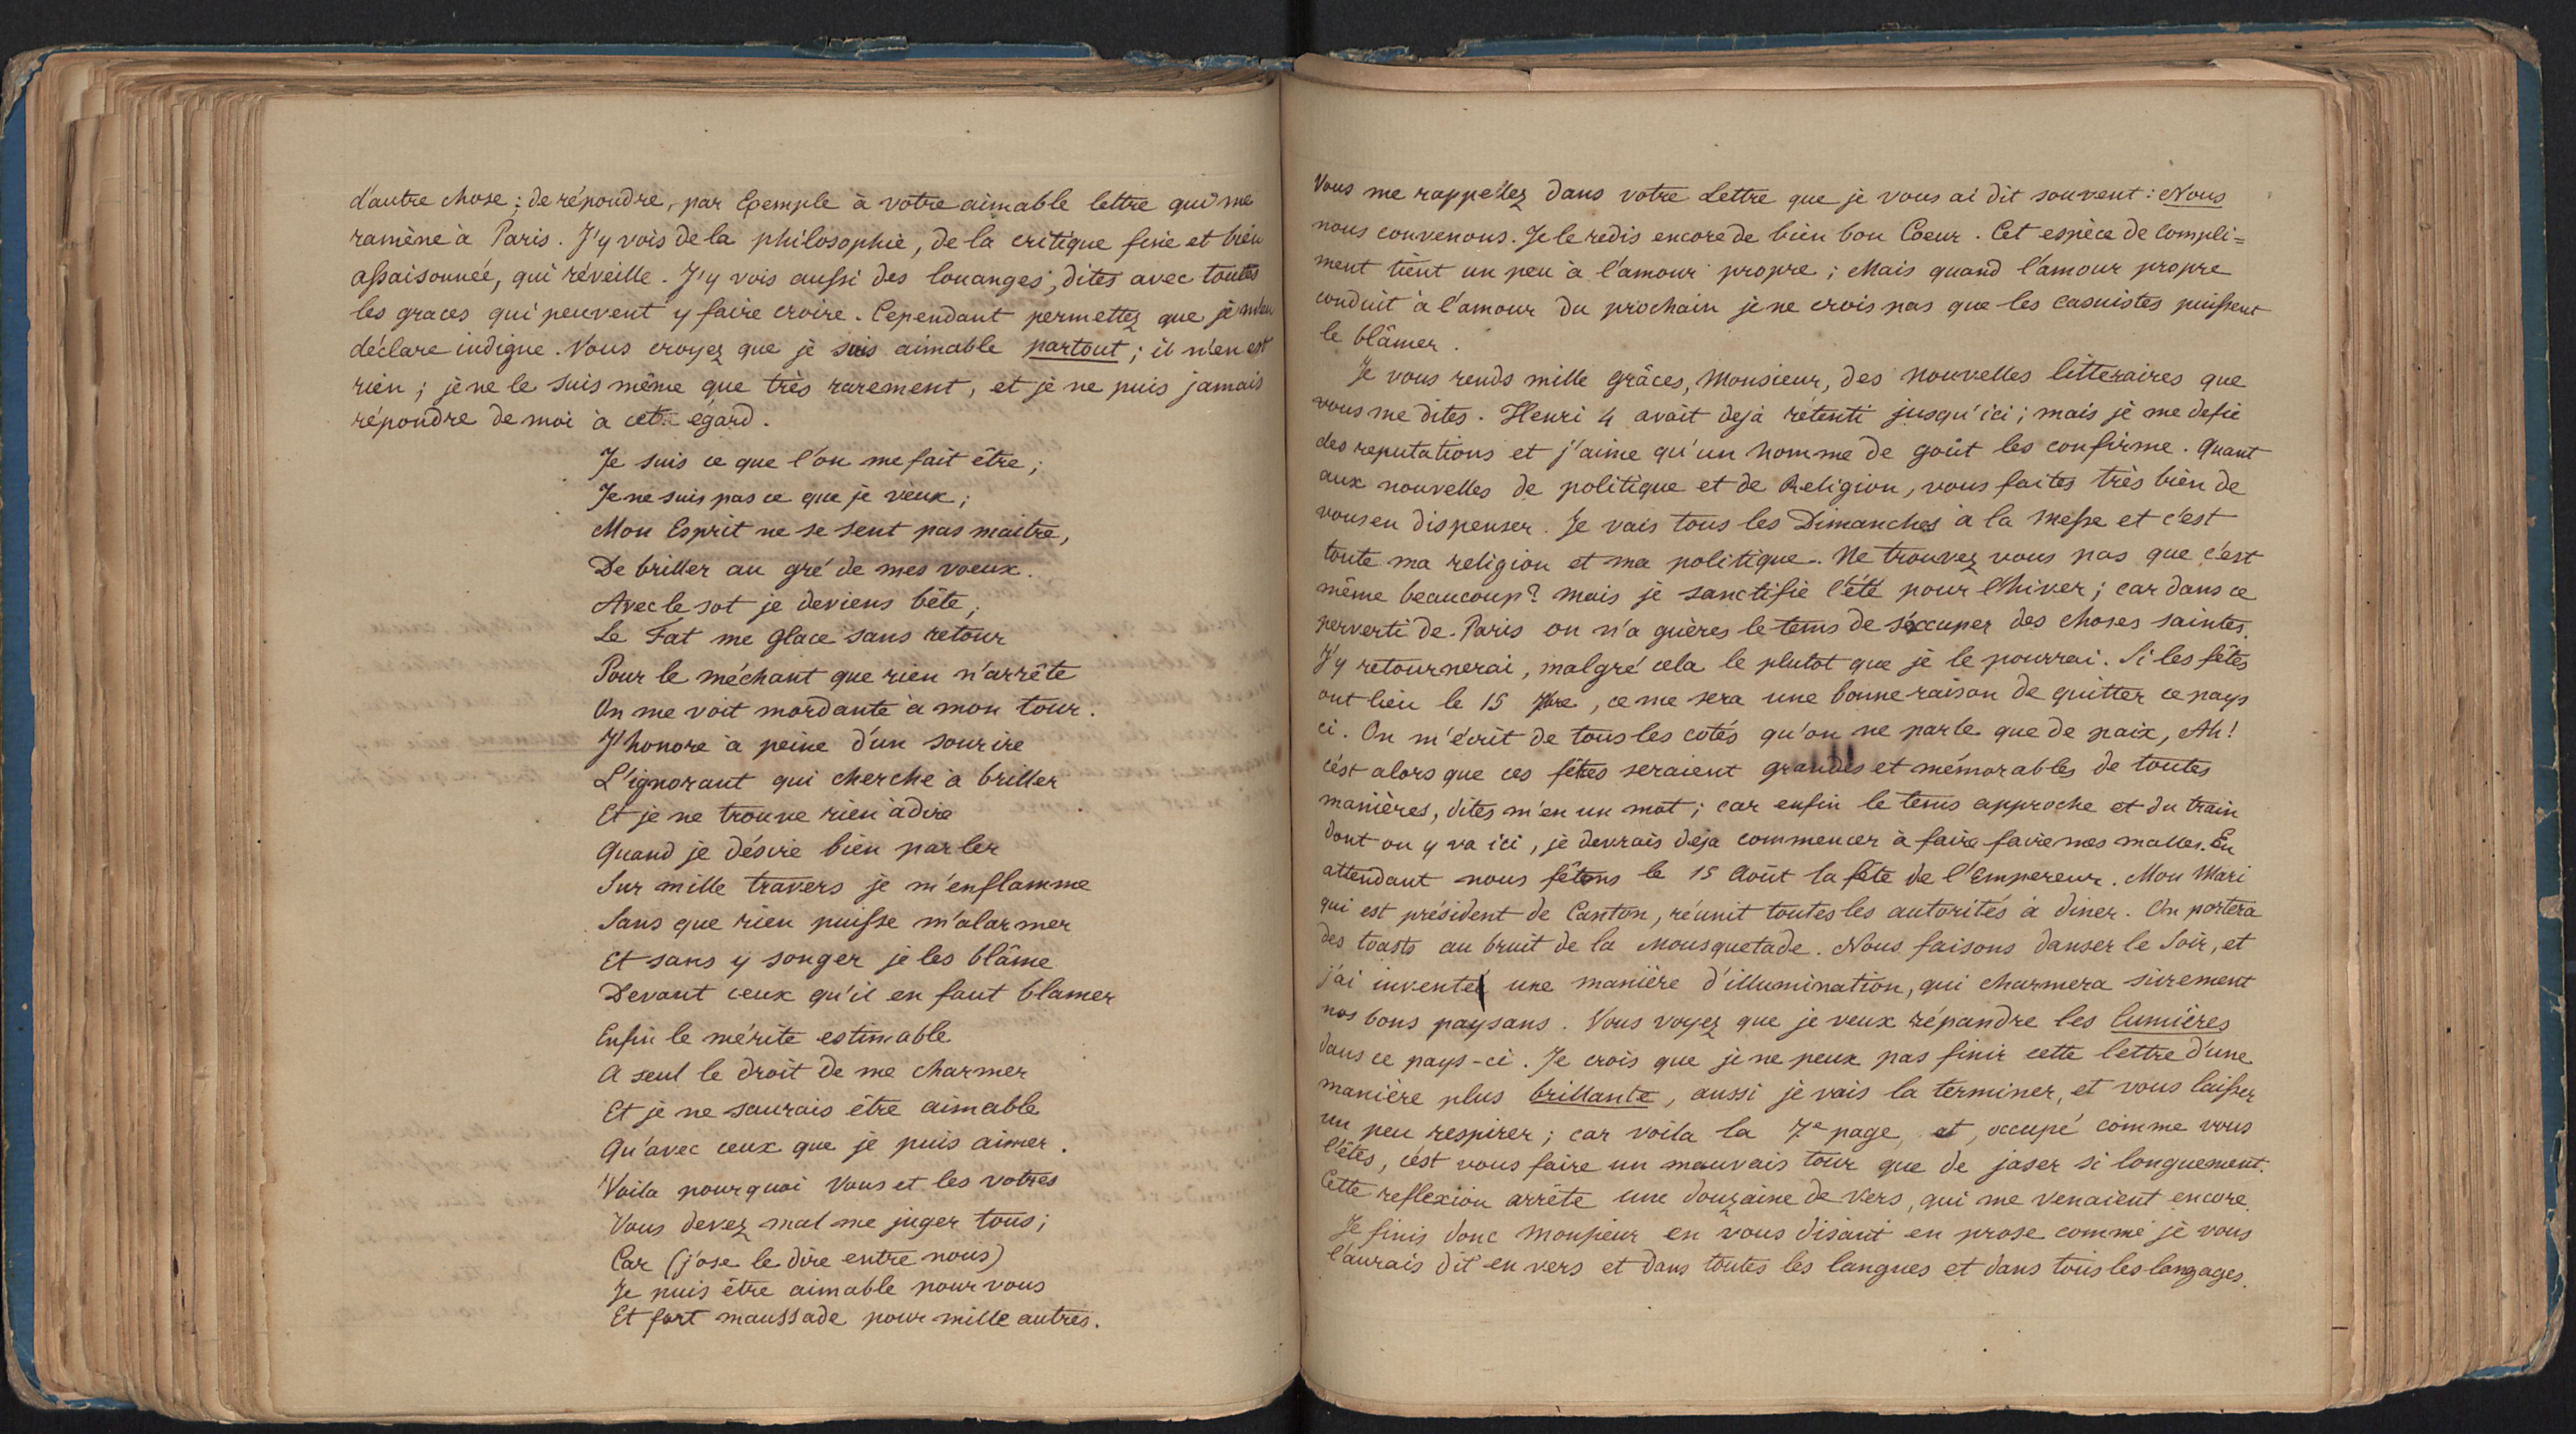 d'autre chose; de répondre, par Exemple à votre aimable lettre qui me
ramène à Paris. J'y vois de la philosophie, de la critique fine et bien
assaisonnée, qui réveille. J'y vois aussi des louanges, dites avec toutes
les graces qui peuvent y faire croire. Cependant permettez que je m'en
déclare indigne. Vous croyez que je suis aimable partout; il n'en est
rien; je ne le suis même que très rarement, et je ne puis jamais
répondre de moi à cet égard.
Je suis ce que l'on me fait être;
Je ne suis pas ce que je veux;
Mon Esprit ne se sent pas maitre,
De briller au gré de mes voeux.
Avec le sot je deviens bête,
Le Fat me glace sans retour
Pour le méchant que rien n'arrête
On me voit mordante à mon tour.
J'honore à peine d'un sourire
L'ignorant qui cherche à briller
Et je ne trouve rien à dire
Quand je désire bien parler
Sur mille travers je m'enflamme
Sans que rien puisse m'alarmer
Et sans y songer je les blâme
Devant ceux qu'il en faut blamer
Enfin le mérite estimable
A seul le droit de me charmer
Et je ne saurais être aimable
Qu'avec ceux que je puis aimer.
Voila pourquoi Vous et les votres
Vous devez mal me juger tous;
Car (j'ose le dire entre nous)
Je puis être aimable pour vous
Et fort maussade pour mille autres.
Vous me rappellez dans votre Lettre que je vous ai dit souvent: Nous
nous convenons. Je le redis encore de bien bon Coeur. Cet espèce de compli=
ment tient un peu à l'amour propre; Mais quand l'amour propre
conduit à l'amour du prochain je ne crois pas que les casuistes puissent
le blâmer.
Je vous rends mille grâces, Monsieur, des nouvelles litteraires que
vous me dites. Henri 4 avait deja retenti jusqu'ici; mais je me defie
des reputations et j'aime qu'un homme de goût les confirme. Quant
aux nouvelles de politique et de Religion, vous faites très bien de
vous en dispenser. Je vais tous les Dimanches à la messe et c'est
toute ma religion et ma politique. Ne trouvez vous pas que c'est
même beaucoup? mais je sanctifie l'été pour l'hiver; car dans ce
perverti de Paris on n'a guères le tems de s'occuper des choses saintes.
J'y retournerai, malgré cela le plutot que je le pourrai. Si les fêtes
ont lieu le 15 7bre, ce me sera une bonne raison de quitter ce pays
ci. On m'écrit de tous les cotés qu'on ne parle que de paix, Ah!
c'est alors que ces fêtes seraient grandes et mémorables de toutes
manières, dites m'en un mot; car enfin le tems approche et du train
dont on y va ici, je devrais deja commencer à faire faire mes malles. En
attendant nous fêtons le 15 Août la fête de l'Empereur. Mon Mari
qui est président de Canton, réunit toutes les autorités à diner. On portera
des toasts au bruit de la Mousquetade. Nous faisons danser le Soir, et
j'ai inventé une manière d'illumination, qui charmera surement
nos bons paysans. Vous voyez que je veux répandre les lumières
dans ce pays-ci. Je crois que je ne peux pas finir cette lettre d'une
manière plus brillante, aussi je vais la terminer, et vous laisser
un peu respirer; car voila la 7e page, et, occupé comme vous
l'êtes, c'est vous faire un mauvais tour que de jaser si longuement.
Cette reflexion arrête une douzaine de vers, qui me venaient encore.
Je finis donc Monsieur en vous disant en prose comme je vous
l'aurais dit en vers et dans toutes les langues et dans tous les langages.